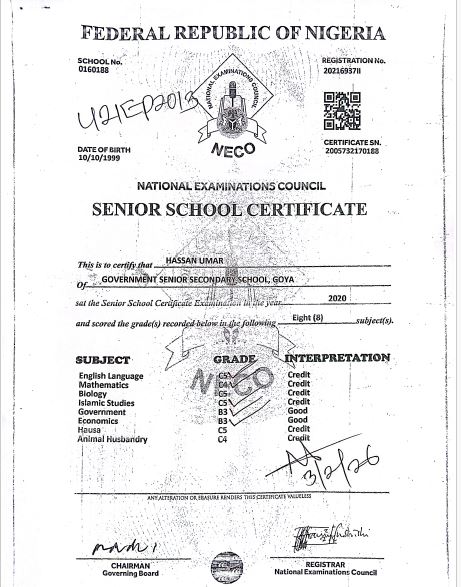 FEDERAL REPUBLIC OF NIGERIA
SCHOOL No.
0160188
REGISTRATION No.
20216937II
U21EP2013
NATIONAL EXAMINATIONS COUNCIL
NECO
DATE OF BIRTH
10/10/1999
CERTIFICATE SN.
2005732170188
NATIONAL EXAMINATIONS COUNCIL
SENIOR SCHOOL CERTIFICATE
This is to certify that HASSAN UMAR
Of GOVERNMENT SENIOR SECONDARY SCHOOL, GOYA
sat the Senior School Certificate Examination in the year 2020
and scored the grade(s) recorded below in the following Eight (8) subject(s).
SUBJECT GRADE INTERPRETATION
English Language C5 Credit
Mathematics C4 Credit
Biology C5 Credit
Islamic Studies C5 Credit
Government B3 Good
Economics B3 Good
Hausa C5 Credit
Animal Husbandry C4 Credit
NECO
3/2/26
ANY ALTERATION OR ERASURE RENDERS THIS CERTIFICATE VALUELESS
CHAIRMAN
Governing Board
REGISTRAR
National Examinations Council